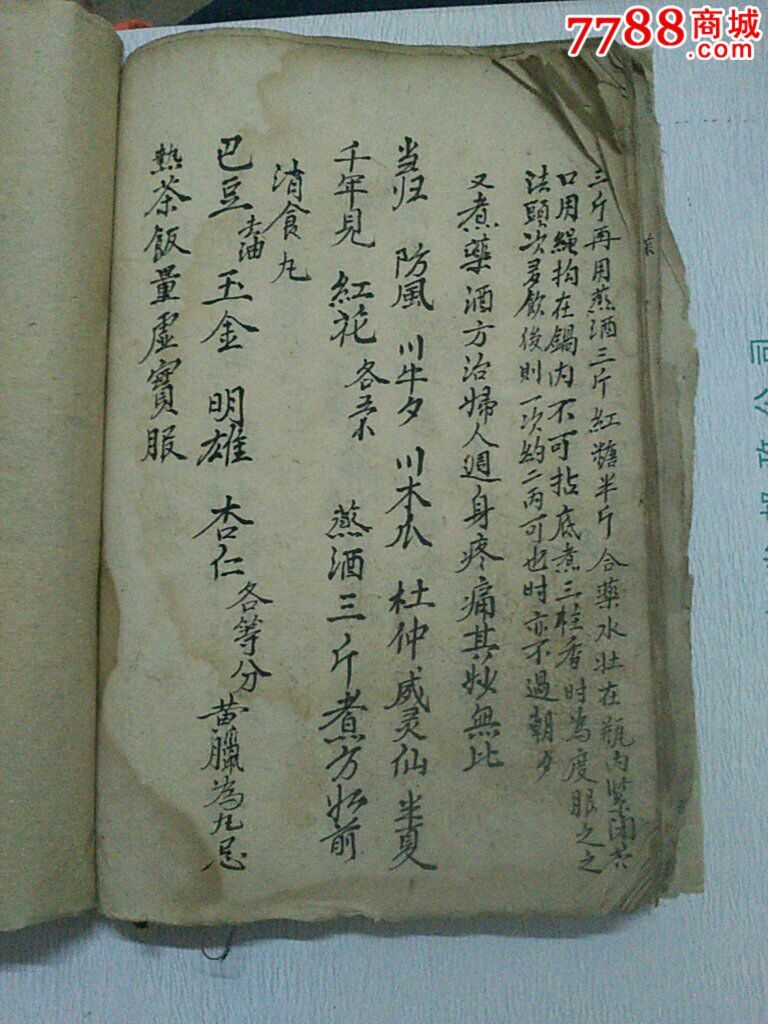 三斤再用蒸酒三斤紅糖半斤合藥水壯在瓶內緊閉其
口用繩拘在鍋內不可拈底煮三柱香時為度服之之
法頭次多飲後則一次約二丙可也时亦不過朝夕
又煮藥酒方治婦人週身疼痛其妙無比
当归 防風 川牛夕 川木瓜 杜仲 威灵仙 半夏
千年見 紅花 各 蒸酒三斤煮方如前
消食丸
巴豆去油 玉金 明雄 杏仁 各等分 黄臘為丸忌
熱茶飯量虛實服
7788商城
.com